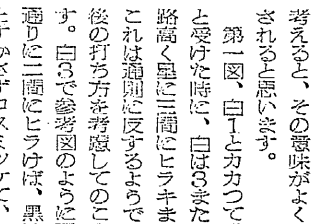 考えると、その意味がよく
されると思います。
第一図、白1とカカつて
と受けた時に、白は3また
路高く星に三間にヒラキま
これは通則に反するようで
後の打ち方を考慮してのこ
す。白3で参考図のように
通りに二間にヒラけば、黒
すかさずコスミツケて、